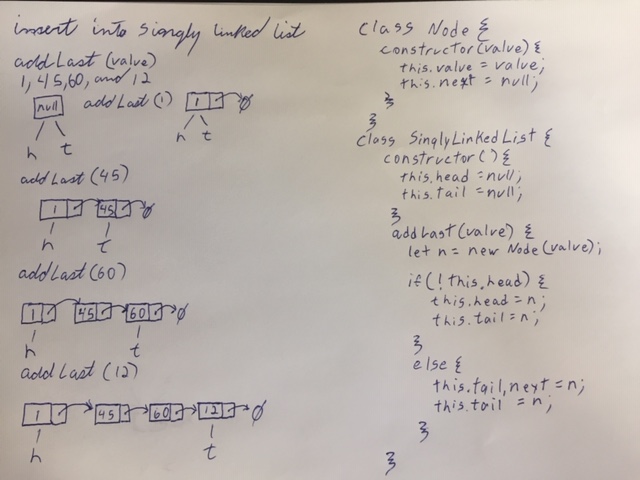 insert into singly linked list
addLast(value)
1, 45, 60, and 12
null
h t
addLast(1)
1
h t
addLast(45)
1 45 ∅
h t
addLast(60)
1 45 60 ∅
h t
addLast(12)
1 45 60 12 ∅
h t
class Node {
constructor(value) {
this.value = value;
this.next = null;
}
}
class SinglyLinkedList {
constructor() {
this.head = null;
this.tail = null;
}
addLast(value) {
let n = new Node(value);
if(!this.head) {
this.head = n;
this.tail = n;
}
else {
this.tail.next = n;
this.tail = n;
}
}
}